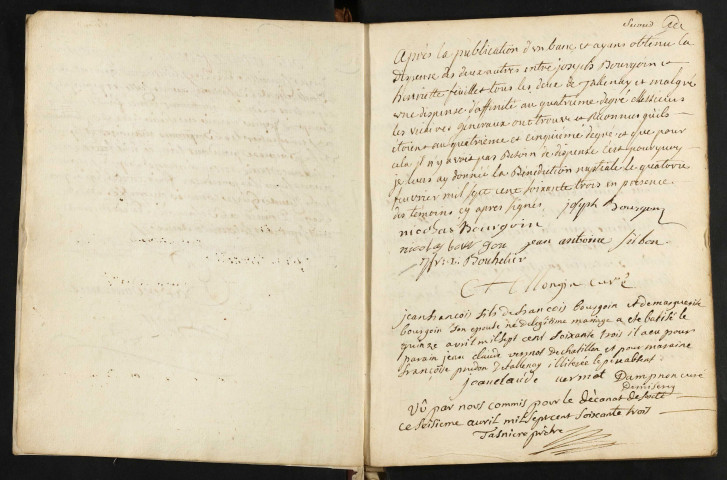 Second
Après la publication d'un banc, et ayans obtenu la
dispense des deux autres entre joseph Bourgoin et
henriette feuillet tous les deux de et malgré
une dispense d'affinité au quatrieme degré Messieurs
les vicaires généraux ont trouvé et Reconnus quils
étoient au quatrieme et cinquième degré et que pour
cela il n'y avoit pas Besoin de dispense C'est pourquoy
je leurs ay donnée la Bénédiction nuptiale le quatorze
feuvrier mil sept cent soixante trois en presence
des témoins cy apres signés. joseph Bourgoin
nicolas Bourgoin
nicolas jean antoine
Bouhelier
Mongin curé
jean francois fils de francois bourgoin et de marguerite
bourgoin son epouse né de legitime mariage a ete batisé le
quinze avril mil sept cent soixante trois il a eu pour
parain jean claude vermot de chatillon et pour maraine
francoise prudon illiterée le pere absent
jean claude vermot curé
Vû par nous commis pour le décanat de
ce seisieme avril mil sept cent soixante trois
prêtre